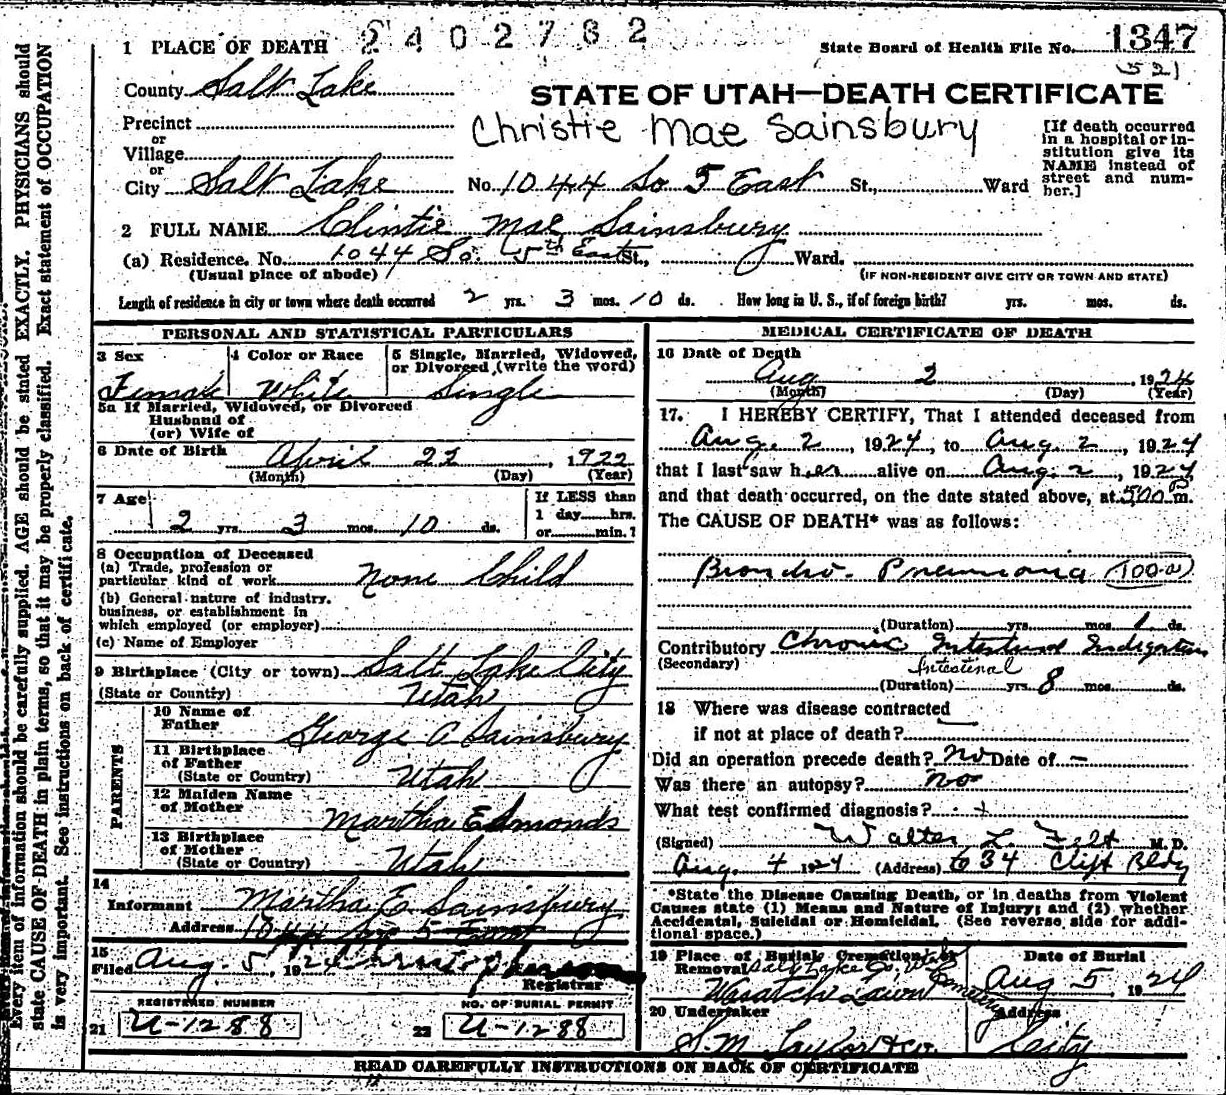 2402762
1 PLACE OF DEATH
State Board of Health File No. 1347
521
County Salt Lake
STATE OF UTAH—DEATH CERTIFICATE
Precinct
or
Village
or
City Salt Lake No. 1044 So 5 East St., Ward
Christie Mae Sainsbury
[If death occurred
in a hospital or in-
stitution give its
NAME instead of
street and num-
ber.]
2 FULL NAME Clintie Mae Sainsbury
(a) Residence. No. 1044 So. 5th East St., Ward.
(Usual place of abode)
(IF NON-RESIDENT GIVE CITY OR TOWN AND STATE)
Length of residence in city or town where death occurred 2 yrs. 3 mos. 10 ds. How long in U. S., if of foreign birth? yrs. mos. ds.
PERSONAL AND STATISTICAL PARTICULARS
3 Sex
Female
4 Color or Race
White
5 Single, Married, Widowed,
or Divorced (write the word)
Single
5a If Married, Widowed, or Divorced
Husband of
(or) Wife of
6 Date of Birth April 22, 1922
(Month) (Day) (Year)
7 Age
2 yrs. 3 mos. 10 ds.
If LESS than
1 day hrs.
or min.?
8 Occupation of Deceased
(a) Trade, profession or
particular kind of work None Child
(b) General nature of industry,
business, or establishment in
which employed (or employer)
(c) Name of Employer
9 Birthplace (City or town) Salt Lake City
(State or Country) Utah
PARENTS
10 Name of
Father George A Sainsbury
11 Birthplace
of Father
(State or Country) Utah
12 Maiden Name
of Mother Martha Edmonds
13 Birthplace
of Mother
(State or Country) Utah
14
Informant Martha E. Sainsbury
Address 1044 So 5 East
15
Filed Aug. 5, 1924
Registrar
REGISTERED NUMBER
21 U-1288
NO. OF BURIAL PERMIT
22 U-1288
MEDICAL CERTIFICATE OF DEATH
16 Date of Death
Aug 2, 1924
(Month) (Day) (Year)
17. I HEREBY CERTIFY, That I attended deceased from
Aug. 2, 1924, to Aug. 2, 1924
that I last saw her alive on Aug. 2, 1924,
and that death occurred, on the date stated above, at 500 P m.
The CAUSE OF DEATH* was as follows:
Broncho-Pneumonia (100-a)
(Duration) yrs. mos. 1 ds.
Contributory Chronic Intestinal Indigestion
(Secondary) Intestinal
(Duration) yrs. 8 mos. ds.
18 Where was disease contracted
if not at place of death?
Did an operation precede death? No Date of -
Was there an autopsy? No
What test confirmed diagnosis? +
(Signed) Walter L. Felt M. D.
Aug. 4 1924 (Address) 634 Clift Bldg
*State the Disease Causing Death, or in deaths from Violent
Causes state (1) Means and Nature of Injury; and (2) whether
Accidental, Suicidal or Homicidal. (See reverse side for addi-
tional space.)
19 Place of Burial, Cremation or
Removal Salt Lake Co, Utah
Wasatch Lawn Cemetery
Date of Burial
Aug 5 1924
20 Undertaker
S.M. Taylor & co.
Address
City
READ CAREFULLY INSTRUCTIONS ON BACK OF CERTIFICATE
Every item of information should be carefully supplied. AGE should be stated EXACTLY. PHYSICIANS should
state CAUSE OF DEATH in plain terms, so that it may be properly classified. Exact statement of OCCUPATION
is very important. See instructions on back of certificate.